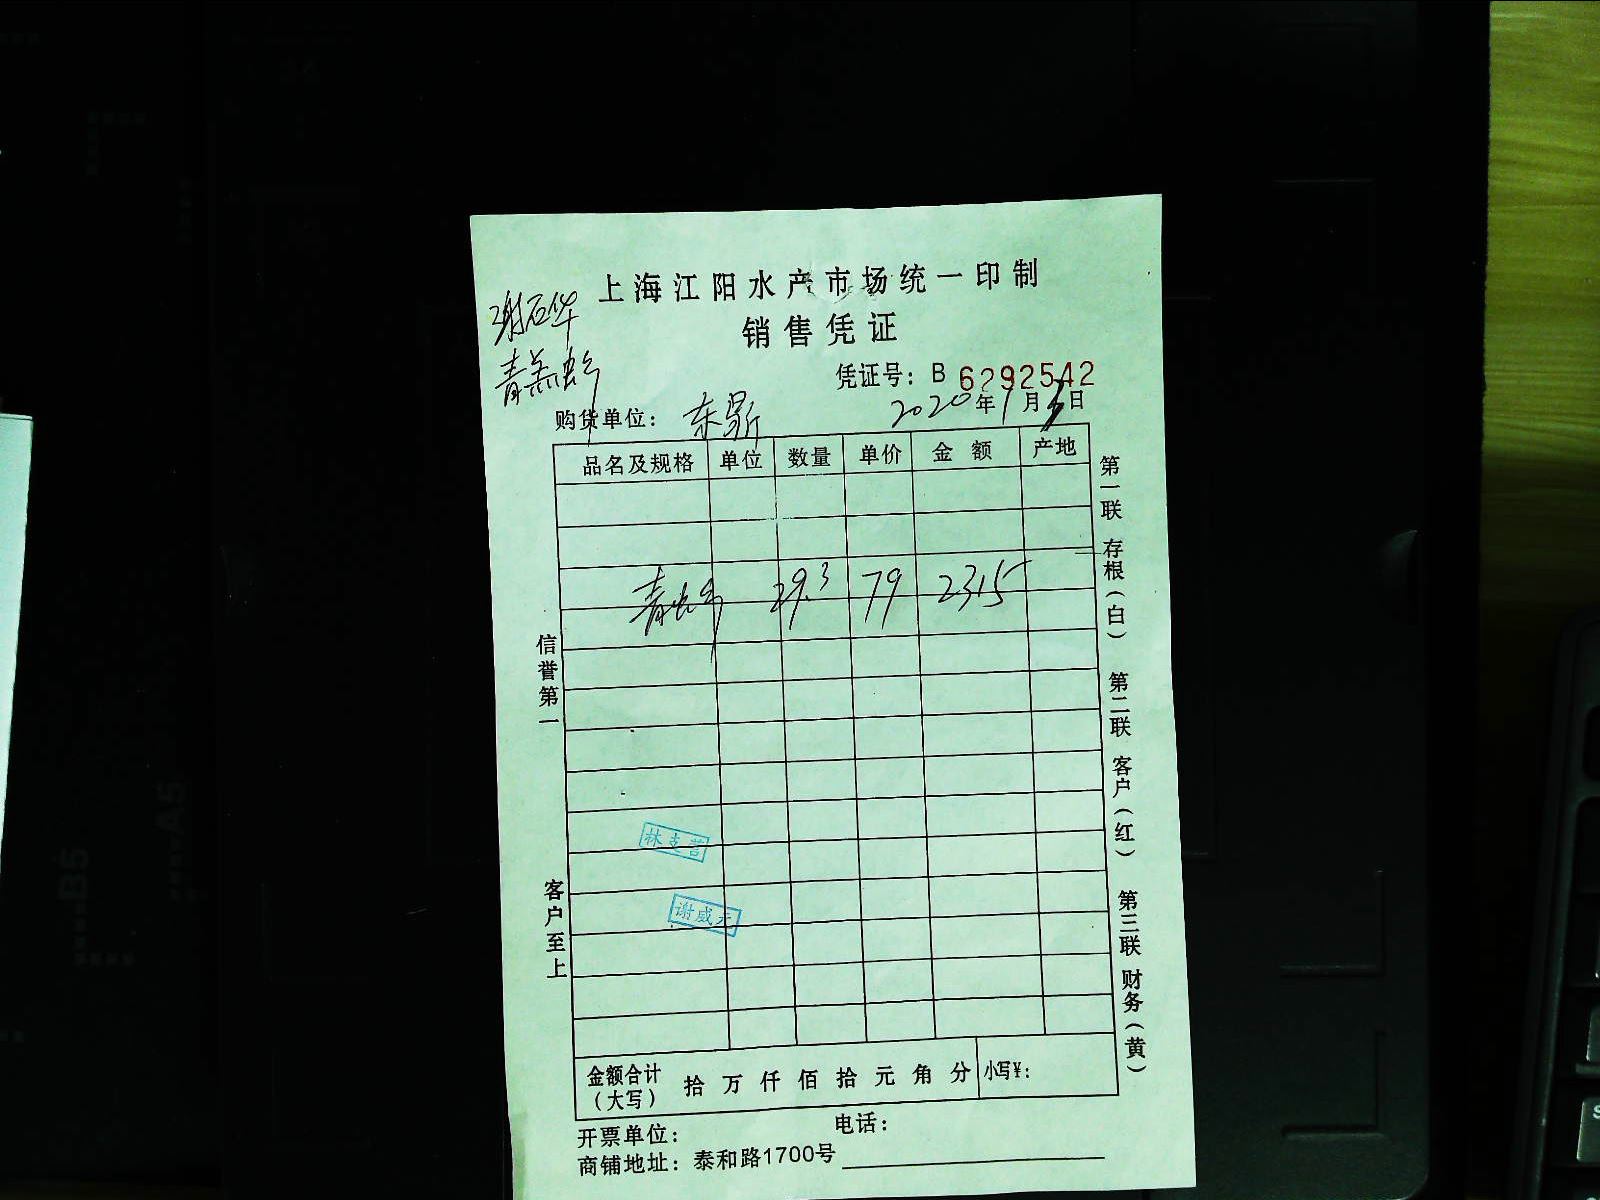 上海江阳水产市场统一印制
销售凭证
谢石华
凭证号：B 6292542
购货单位：东昇 2020年1月3日
品名及规格 单位 数量 单价 金额 产地
29.3 79 2315
信誉第一
客户至上
第一联 存根（白） 第二联 客户（红） 第三联 财务（黄）
谢威元
金额合计（大写） 拾 万 仟 佰 拾 元 角 分 小写¥：
开票单位： 电话：
商铺地址：泰和路1700号
B5
A5